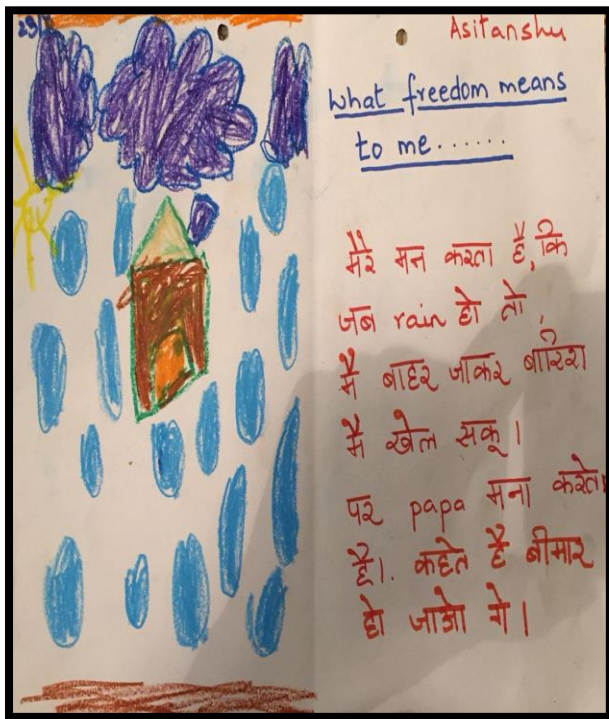 23
Asitanshu
What freedom means
to me.......
मेरे मन करता है, कि
जब rain हो तो,
मै बाहर जाकर बारिश
मै खेल सकू।
पर papa मना करते
है।. कहेत है बीमार
हो जाओ गे।